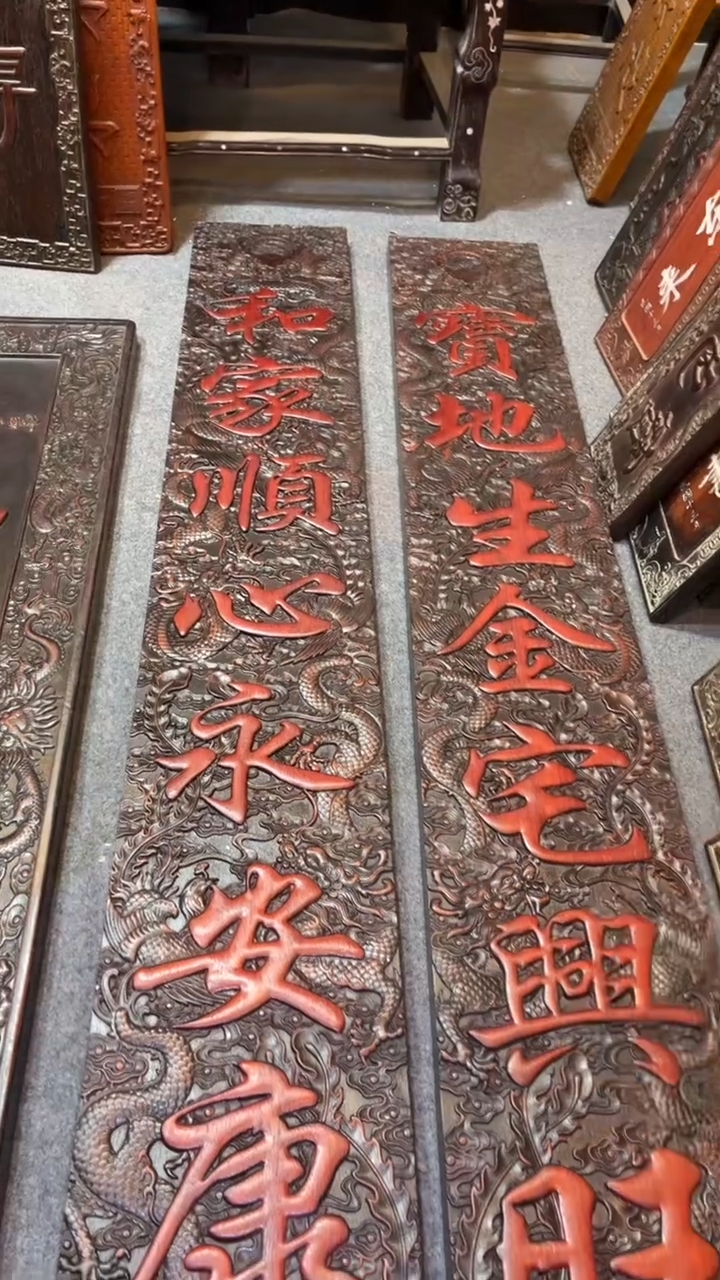 寶地生金宅興旺
和家順心永安康
來